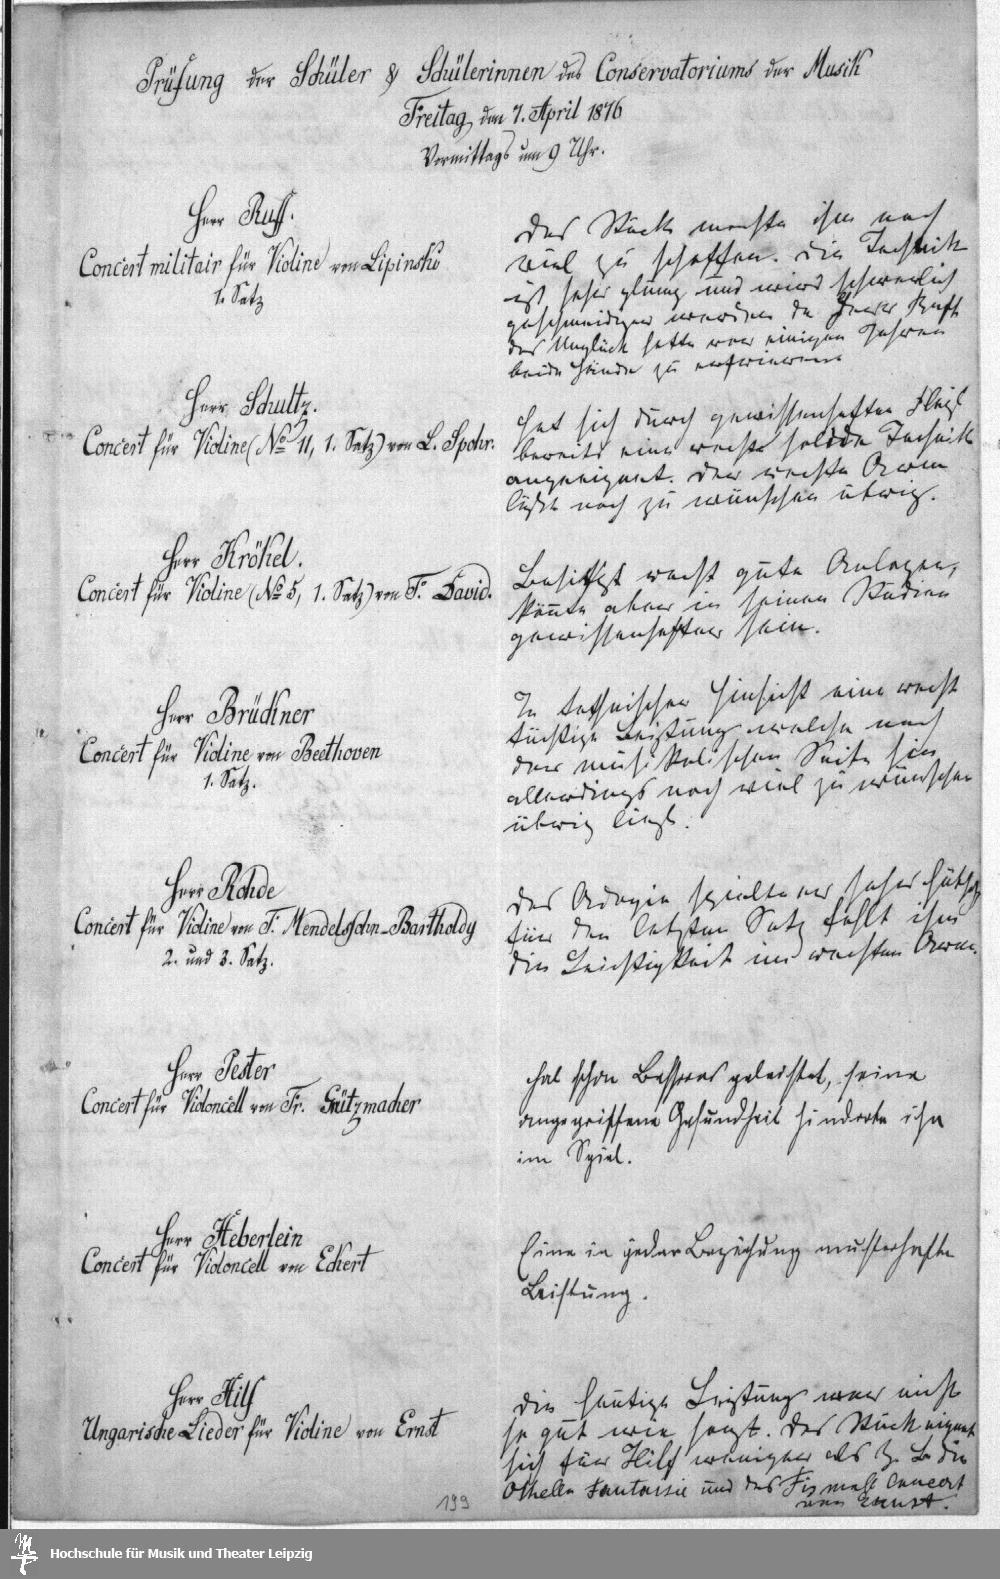 Prüfung der Schüler & Schülerinnen des Conservatoriums der Musik
Freitag, den 7. April 1876
Vormittags um 9 Uhr.
Herr Ruff.
Concert militair für Violine von Lipinski
1. Satz
Das Stück machte ihm noch
viel zu schaffen. Die Technik
ist sehr und wird schwerlich
geschmeidiger werden da Herr Ruff
das Unglück hatte vor einigen Jahren
beide Hände zu erfrieren.
Herr Schultz.
Concert für Violine (No 11, 1. Satz) von L. Spohr.
Hat sich durch gewissenhaften Fleiß
bereits eine recht solide Technik
angeeignet. Der rechte Arm
läßt noch zu wünschen übrig.
Herr Krökel.
Concert für Violine (No 5, 1. Satz) von F. David.
Besitzt recht gute Anlagen,
könnte aber in seinen Studien
gewissenhafter sein.
Herr Brückner
Concert für Violine von Beethoven
1. Satz.
In technischer Hinsicht eine recht
tüchtige Leistung welche nach
der musikalischen Seite hin
allerdings noch viel zu wünschen
übrig ließ.
Herr Rohde
Concert für Violine von F. Mendelssohn-Bartholdy
2. und 3. Satz.
Das Adagio spielte er sehr hübsch,
für den letzten Satz fehlt ihm
die Leichtigkeit im rechten Arm.
Herr Pester
Concert für Violoncell von Fr. Grützmacher
hat schon Besseres geleistet, seine
angegriffene Gesundheit hinderte ihn
im Spiel.
Herr Heberlein
Concert für Violoncell von Eckert
Eine in jeder Beziehung musterhafte
Leistung.
Herr Hilf
Ungarische Lieder für Violine von Ernst
Die heutige Leistung war nicht
so gut wie sonst. Das Stück eignet
sich für Hilf weniger als z. B. die
Othello Fantaisie und das Fis moll Concert
von Ernst.
199
Hochschule für Musik und Theater Leipzig